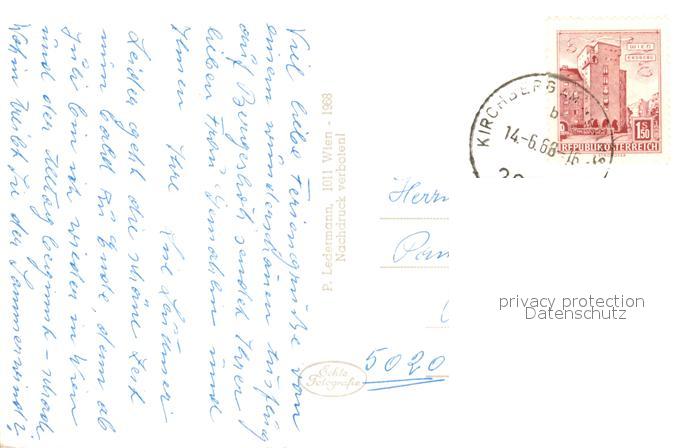 Viel liebe Feriengrüße von
einem wunderschönen Ausflug
auf Bergeshöh sendet Ihnen
lieber Frau Gemahlin und
Ihnen Ihre
Leider geht die schöne Zeit
nun bald zu Ende, denn ab
Juli bin ich wieder in Wien
und der Alltag beginnt –
Wohin treibt Sie der Sommerwind?
P. Ledermann, 1011 Wien - 1968
Nachdruck verboten!
Echte
Fotografie
WIEN
ERDBERG
1.50
REPUBLIK ÖSTERREICH
KIRCHBERG AM
b
14-6.68-16
Herrn
5020
privacy protection
Datenschutz